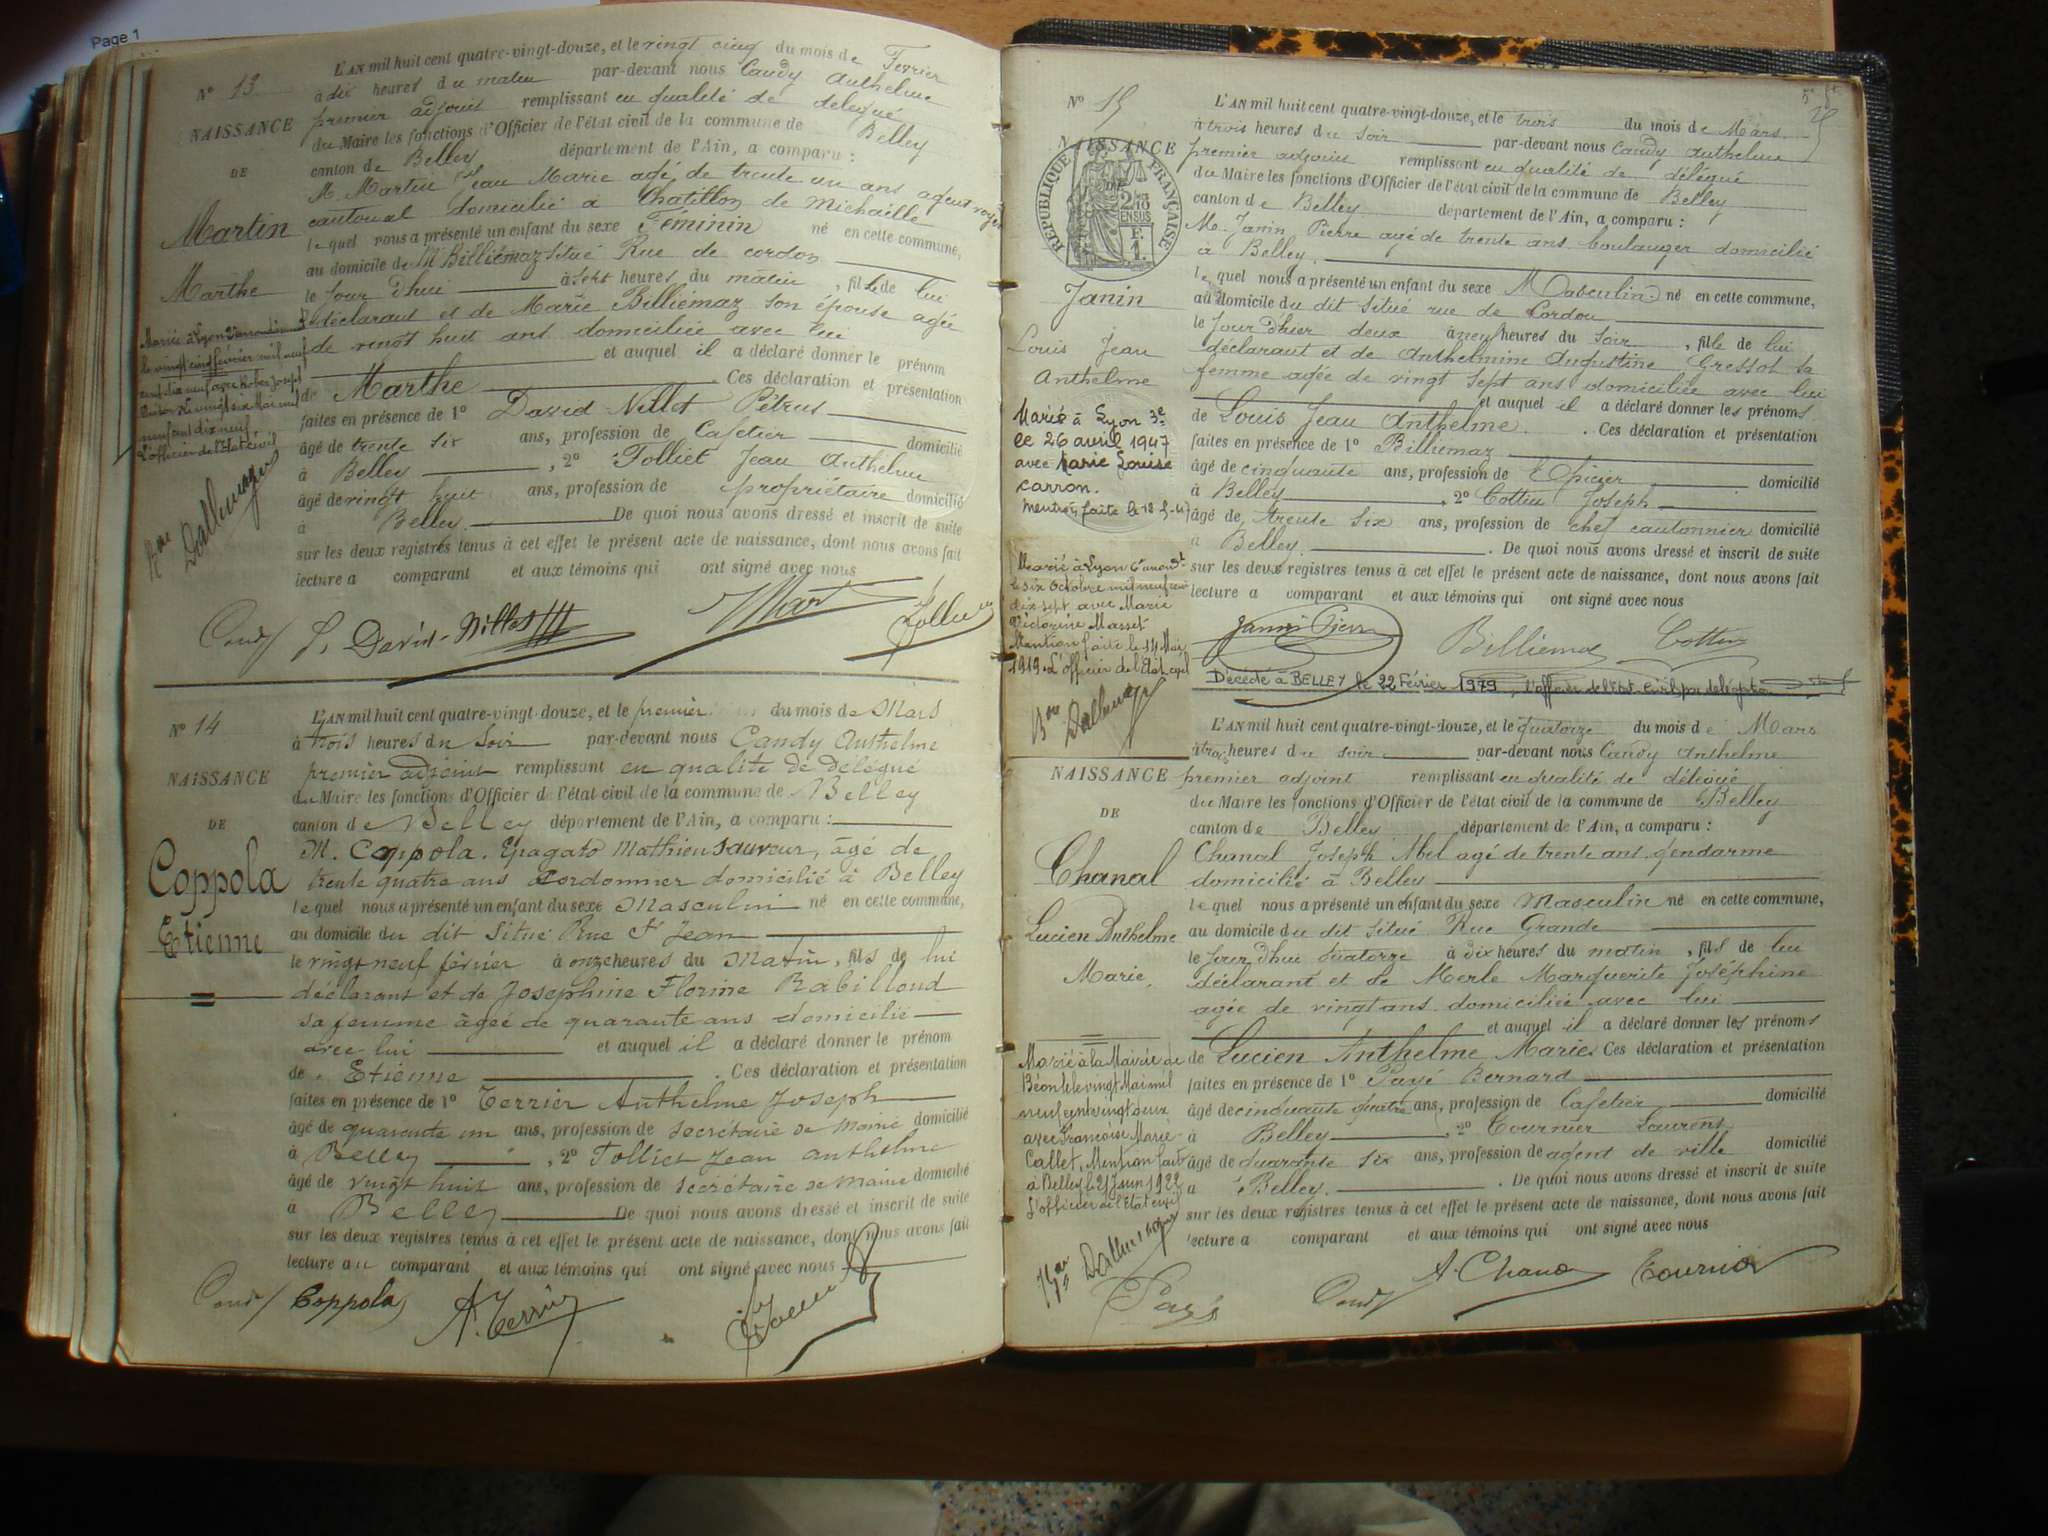 Page 1
N° 13
NAISSANCE
DE
Martin
Marthe
L'AN mil huit cent quatre-vingt-douze, et le vingt cinq du mois de Fevrier
à dix heures du matin par-devant nous Candy Anthelme
premier adjoint remplissant en qualité de delegué
du Maire les fonctions d'Officier de l'état civil de la commune de Belley
canton de Belley département de l'Ain, a comparu :
M. Martin Jean Marie agé de trente un ans agent voyer
cantonal domicilié à Chatillon de Michaille
lequel nous a présenté un enfant du sexe Féminin né en cette commune,
au domicile de M Billiémaz situé Rue de cordon
le jour d'hui à sept heures du matin, fille de lui
déclarant et de Marie Billiémaz son épouse agée
de vingt huit ans domiciliée avec lui
et auquel il a déclaré donner le prénom
de Marthe Ces déclaration et présentation
faites en présence de 1° David Nillet Pétrus
âgé de trente six ans, profession de Cafetier domicilié
à Belley, 2° Tolliet Jean Anthelme
âgé de vingt huit ans, profession de propriétaire domicilié
à Belley. De quoi nous avons dressé et inscrit de suite
sur les deux registres tenus à cet effet le présent acte de naissance, dont nous avons fait
lecture a comparant et aux témoins qui ont signé avec nous
Mariée à Lyon
le vingt cinq février mil neuf
L'officier de l'Etat civil
Dallemagne
Candy P. David-Nillet Mar Tolliet
N° 14
NAISSANCE
DE
Coppola
Etienne
L'AN mil huit cent quatre-vingt-douze, et le premier du mois de Mars
à trois heures du Soir par-devant nous Candy Anthelme
premier adjoint remplissant en qualité de délégué
du Maire les fonctions d'Officier de l'état civil de la commune de Belley
canton de Belley département de l'Ain, a comparu :
M. Coppola. Epagato Mathieu Sauveur, âgé de
trente quatre ans Cordonnier domicilié à Belley
lequel nous a présenté un enfant du sexe Masculin né en cette commune,
au domicile du dit Situé Rue St Jean
le vingt neuf février à onze heures du Matin, fils de lui
déclarant et de Josephine Florine Rabilloud
sa femme âgée de quarante ans domicilié
avec lui et auquel il a déclaré donner le prénom
de Etienne. Ces déclaration et présentation
faites en présence de 1° Terrier Anthelme Joseph
âgé de quarante un ans, profession de secrétaire de mairie domicilié
à Belley, 2° Tolliet Jean anthelme
âgé de vingt huit ans, profession de secrétaire de mairie domicilié
à Belley De quoi nous avons dressé et inscrit de suite
sur les deux registres tenus à cet effet le présent acte de naissance, dont nous avons fait
lecture au comparant et aux témoins qui ont signé avec nous
Candy Coppola A. Terrier
N° 15
NAISSANCE
DE
REPUBLIQUE FRANÇAISE
Janin
Louis Jean
Anthelme
L'AN mil huit cent quatre-vingt-douze, et le trois du mois de Mars
à trois heures du soir par-devant nous Candy Anthelme
premier adjoint remplissant en qualité de délégué
du Maire les fonctions d'Officier de l'état civil de la commune de Belley
canton de Belley département de l'Ain, a comparu :
M. Janin Pierre agé de trente ans boulanger domicilié
à Belley.
lequel nous a présenté un enfant du sexe Masculin né en cette commune,
au domicile du dit situé rue de Cordon
le jour d'hier deux à neuf heures du soir, fils de lui
déclarant et de Anthelmine Augustine Gressot sa
femme agée de vingt sept ans domiciliée avec lui
et auquel il a déclaré donner les prénoms
de Louis Jean Anthelme. Ces déclaration et présentation
faites en présence de 1° Billiemaz
âgé de cinquante ans, profession de Epicier domicilié
à Belley, 2° Cottin Joseph
âgé de trente six ans, profession de chef cantonnier domicilié
à Belley. De quoi nous avons dressé et inscrit de suite
sur les deux registres tenus à cet effet le présent acte de naissance, dont nous avons fait
lecture a comparant et aux témoins qui ont signé avec nous
Marié à Lyon 3e
le 26 avril 1947
avec Marie Louise
Carron.
Mention faite le 18-5-47
Marié à Lyon 6e arrondt
le six Octobre mil neuf cent
dix sept avec Marie
Victorine Masset
Mention faite le 14 Mai
1919. L'officier de l'Etat civil
Dallemagne
Janin Pierre Billiemaz Cottin
Décédé à BELLEY le 22 Février 1979
NAISSANCE
DE
Chanal
Lucien Anthelme
Marie.
L'AN mil huit cent quatre-vingt-douze, et le quatorze du mois de Mars
à trois heures du soir par-devant nous Candy Anthelme
premier adjoint remplissant en qualité de délégué
du Maire les fonctions d'Officier de l'état civil de la commune de Belley
canton de Belley département de l'Ain, a comparu :
Chanal Joseph Abel agé de trente ans, gendarme
domicilié à Belley
lequel nous a présenté un enfant du sexe Masculin né en cette commune,
au domicile du dit situé Rue Grande
le jour d'hui quatorze à dix heures du matin, fils de lui
déclarant et de Merle Marguerite Joséphine
agée de vingt ans domiciliée avec lui
et auquel il a déclaré donner les prénoms
de Lucien Anthelme Marie Ces déclaration et présentation
faites en présence de 1° Payé Bernard
âgé de cinquante quatre ans, profession de Cafetier domicilié
à Belley, 2° Tournier Laurent
âgé de quarante six ans, profession de agent de ville domicilié
à Belley. De quoi nous avons dressé et inscrit de suite
sur les deux registres tenus à cet effet le présent acte de naissance, dont nous avons fait
lecture a comparant et aux témoins qui ont signé avec nous
Marié à la Mairie de
Béon le vingt Mai mil
neuf cent vingt deux
avec Françoise Marie
Callet. Mention fait
à Belley le 21 Juin 1922
L'officier de l'Etat civil
Dallemagne
Payé Candy A. Chanal Tournier